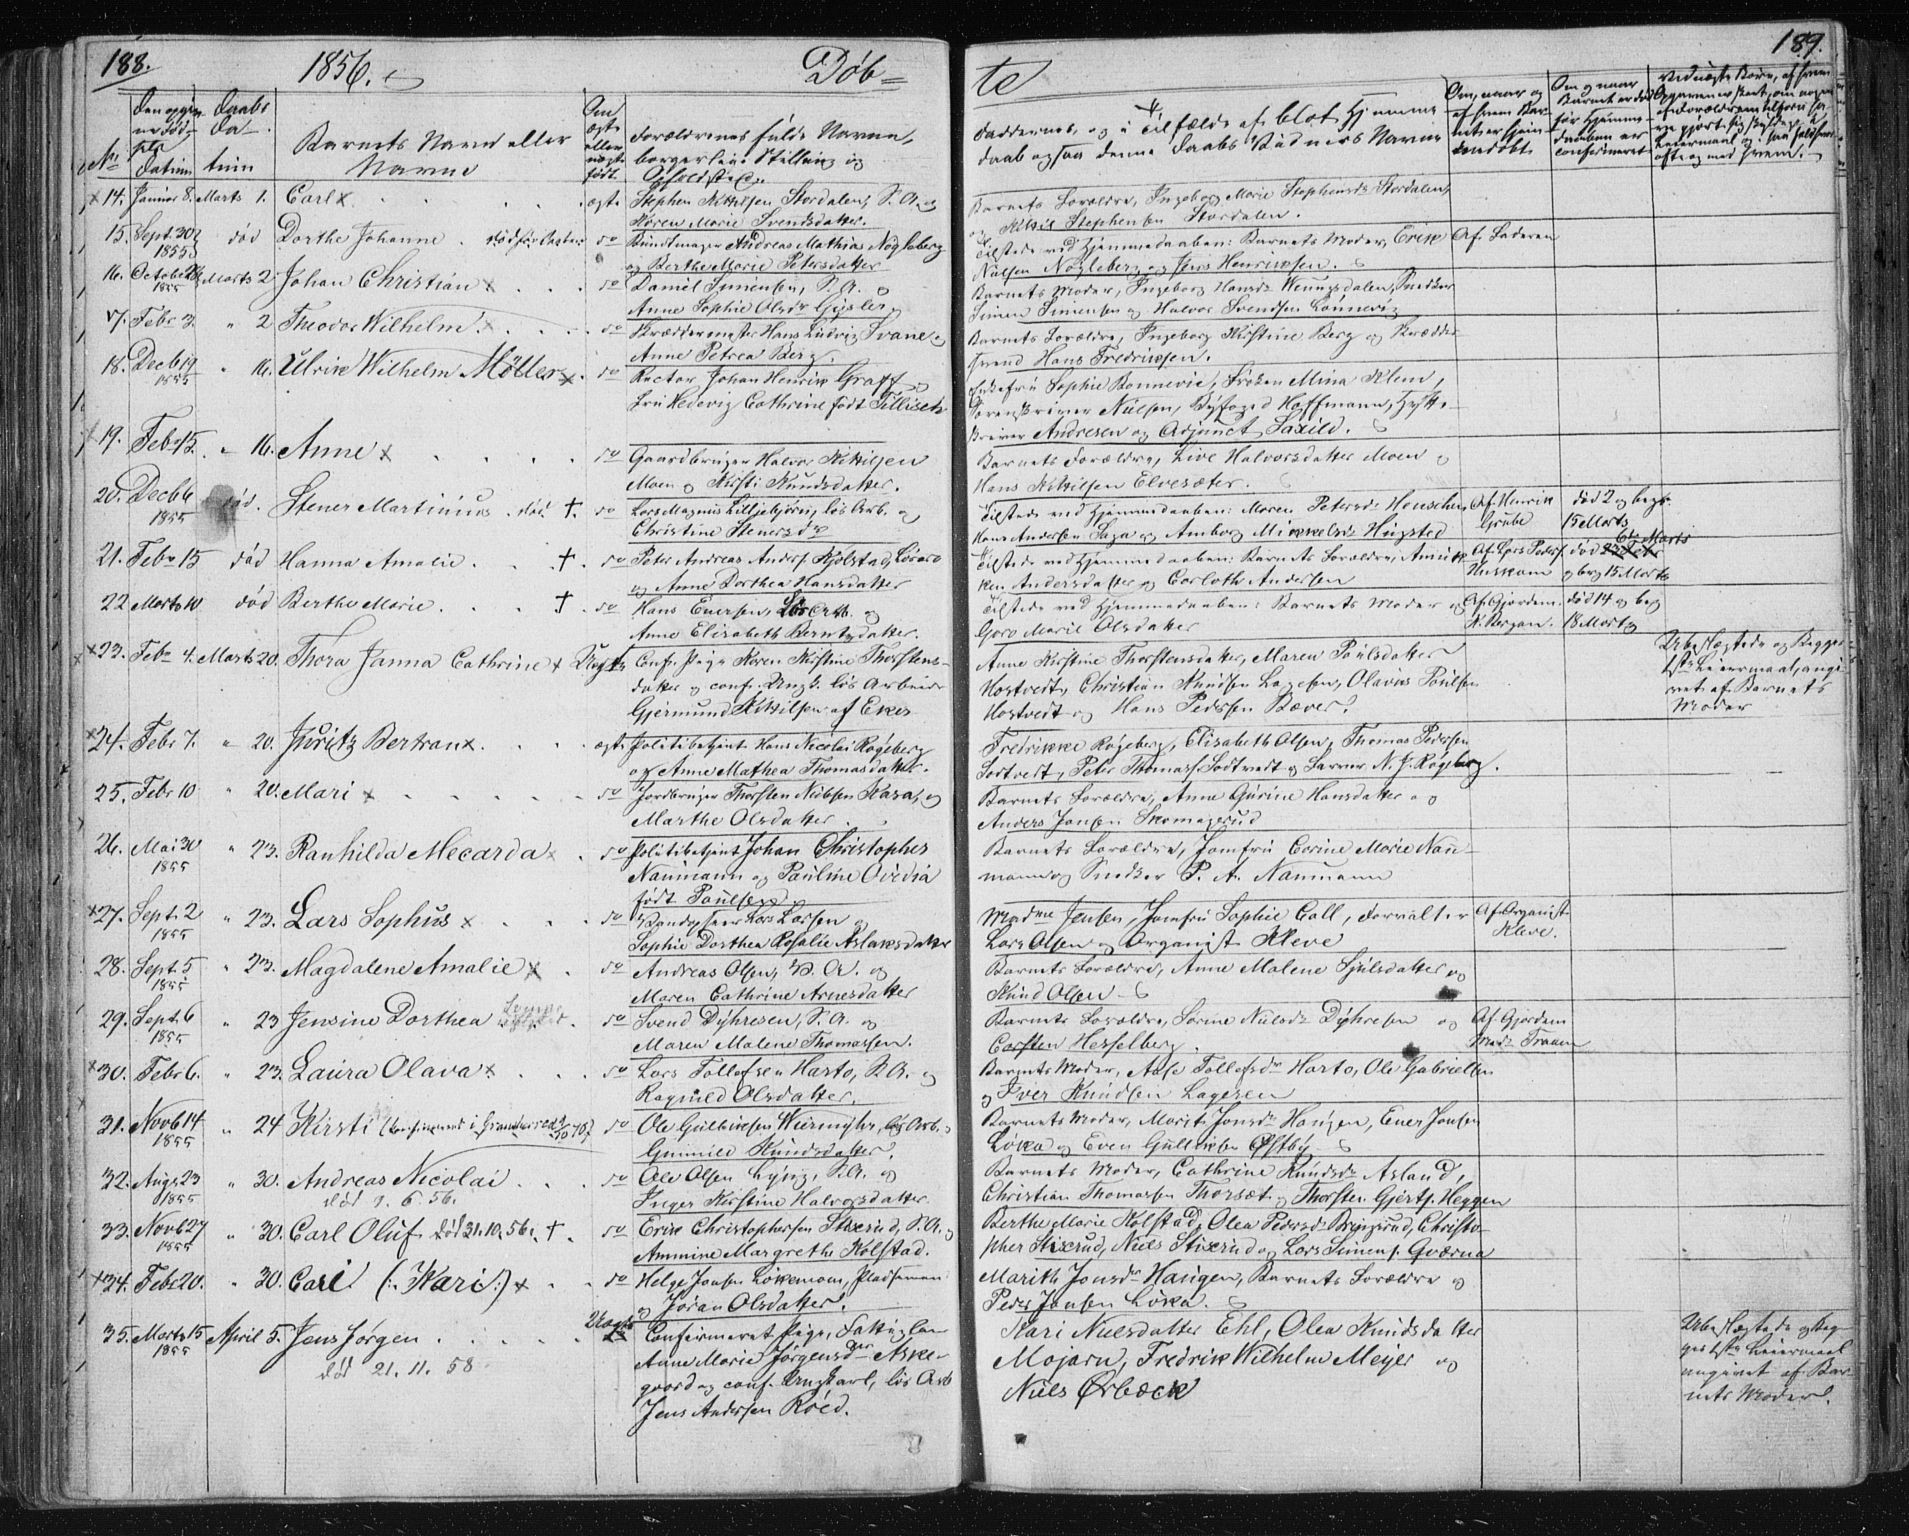 188.
1856.
Døb=
te
189.
No
Den opgiv-
ne Fød-
sels
Datum
Daabs
Da-
tum
Barnets Navn eller
Navne
Om
ægte
eller
uægte
født.
Forældrenes fulde Navne,
borgerlige Stilling og
Opholdsted.
Faddernes, og i Tilfælde af blot Hjemme
daab ogsaa denne Daabs Vidners Navne
Om, naar og
af hvem Bar-
net er hjem
medøbt
Om og naar
Barnet er død
før Hjemme-
daaben er
confirmeret
14. Januar 8. Marts 1. Carl x ægte
Stephen Kittilsen Stordalen, S. A. og
Karen Marie Svendsdatter.
Barnets Forældre, Ingeborg Marie Stephensdr Stordalen,
og Kittil Stephensen Stordalen.
15. Sept. 30 1855 død Dorthe Johanne do
Andreas Mathias Nøgleberg
og Berthe Marie Petersdatter
Tilstede ved Hjemmedaaben: Barnets Moder, Erik
Nielsen Nøgleberg og Jens Henriksen.
Af Faderen
16. October 1855 Marts 2 Johan Christian x do
Daniel Simensen, S. A. og
Anne Sophie Olsdr Gysler,
Barnets Moder, Ingeborg Hansdr
Simen Simensen og Halvor Svendsen Lønnevig
17. Febr 3. " 2 Theodor Wilhelm x do
Skræddermester Hans Ludvig Svane og
Anne Petrea Berg.
Barnets Forældre, Ingeborg Kirstine Berg og Skrædder
svend Hans Fredriksen.
18. Decb 19 1855 " 16. Ulrik Wilhelm Møller x do
Rector Johan Henrik Graff og
Fru Hedevig Cathrine født Tillisch
Enkefru Sophie Bonnevie, Frøken Mina Klem,
Sorenskriver Nielsen, Byfoged Hoffmann, Hytte-
skriver Andresen og Adjunct Saxild.
19. Febr 15. " 16. Anne x do
Gaardbruger Halvor Kittilsen
Moen og Kirsti Knudsdatter.
Barnets Forældre, Live Halvorsdatter Moen og
Hans Kittilsen Elvesæter.
20. Decb 6 1855 død. Stener Martinius død. †. do
Lars Magnus Lilljebjørn, løs Arb. og
Christine Stenersdr
Tilstede ved Hjemmedaaben: Maren Petersdr Henschen,
Hans Andersen Saga og Amborg Mikkelsdr Hugsted
Af Henrik
Grube
død 2 og begr.
15 Marts
21. Febr 15 død Hanna Amalie † do
Peter Andreas Anders. Kolstad,
og Anne Dorthea Hansdatter
Tilstede ved Hjemmedaaben: Barnets Forældre,
Andersdatter og Carloth Andersen
Af Lars Peders.
død 6te Marts
og beg 15 Marts
22 Marts 10 død Berthe Marie. † do
Hans Eversen, Løs Arb. og
Anne Elisabeth Berntsdatter.
Tilstede ved Hjemmedaaben: Barnets Moder og
Goro Marie Olsdatter
Af Gjordem.
K. Bergan.
død 14 og beg
18 Marts
23. Febr 4. Marts 20. Thora Janna Cathrine x Uægte
Conf. Pige Karen Kirstine Thorstens-
datter og conf. Ungk. løs Arbeider
Gjermund Kittilsen af Eker
Anne Kirstine Thorstensdatter, Maren Poulsdatter
Hostvedt, Christian Knudsen Lagesen, Olavus Poulsen
Hostvedt og Hans Pedersen Bæver.
Ubeslægtede og Begges
1ste Leiermaal, angi-
vet af Barnets
Moder
24. Febr 7. " 20. Juritz Bertran x ægte
Politibetjent Hans Nicolai Røgeberg
og Anne Mathea Thomasdatter.
Fredrikke Røgeberg, Elisabeth Olsen, Thomas Pedersen
Sodtvedt, Peter Thomass. Sodtvedt og Farver N. J. Røgeberg.
25. Febr 10 " 20. Mari x do
Jordbruger Thorsten Nielsen Kasa, og
Marthe Olsdatter.
Barnets Forældre, Anne Gurine Hansdatter og
Anders Jansen Skomagerud
26. Mai 30 1855 " 23. Ranhilda Mecarda x do
Politibetjent Johan Christopher
Naumann og Pauline Ovidia
født Poulsen
Barnets Forældre, Jomfru Corine Marie Nau-
mann og Snedker P. A. Naumann
27. Sept. 2 1855 " 23. Lars Sophus x do
Lars Larsen og
Sophie Dorthea Rosalie Aslaksdatter
Madme Jensen, Jomfru Sophie Coll, Forvalter
Lars Olsen og Organist Kleve
Af Organist
Kleve.
28. Sept. 5 1855 " 23. Magdalene Amalie x do
Andreas Olsen, B. A. og
Maren Cathrine Arnesdatter
Barnets Forældre, Anne Malene Sjulsdatter og
Knud Olsen
29. Sept. 6 1855 " 23 Jensine Dorthea do
Svend Dyhresen, S. A. og
Maren Malene Thomassen.
Barnets Forældre, Sørine Nielsdr Dyhresen og
Carsten Hesselberg.
Af Gjordem
Madm Traaen
30. Febr 6. " 23. Laura Olava x do
Lars Tollefsen Harto, S. A. og
Ragnild Olsdatter.
Barnets Moder, Aase Tollefsdr Harto, Ole Gabrielsen
og Iver Knudsen Lagesen
31. Novb 14 1855 " 24 Kirsti do
Ole Gulbrandsen løs Arb. og
Gunnild Knudsdatter.
Barnets Moder, Marit Jonsdr Haugen, Ener Jonsen
Løka og Even Gulliksen Østby
32. Aug. 23 1855 " 30. Andreas Nicolai do
død 9. 6. 56.
Ole Olsen Lysing, S. A. og
Inger Kirstine Halvorsdatter.
Barnets Moder, Cathrine Knudsdr Asland,
Christian Thomassen Thorsæt og Thorsten Gjerts. Heggen
33. Novb 27 1855 " 30. Carl Oluf død 21.10.56. † do
Erik Christophersen Stixrud, S. A. og
Ammine Margrethe Kolstad.
Berthe Marie Kolstad, Olea Pedersdr Bringsrud, Christo-
pher Stixrud, Niels Stixrud og Lars Simens. Qværna
34. Febr 20. " 30. Cari (: Kari :) x do
Helge Jonsen Løkemoen, Pladsmand
og Jøran Olsdatter.
Marith Jonsdr Haugen, Barnets Forældre og
Peder Jonsen Løka.
35. Marts 15 1855 April 5. Jens Jørgen Uægte
død 21. 11. 58
Confirmeret Pige, Fattiglem
Anne Marie Jørgensdr Aske-
gaard og conf. Ungkarl, løs Arb
Jens Andersen Roed.
Kari Nielsdatter Ehl, Olea Knudsdatter
Mojarn, Fredrik Wilhelm Meyer og
Niels Ørbæck
Ubeslægtede og Beg-
ges 1ste Leiermaal
angivet af Bar-
nets Moder.